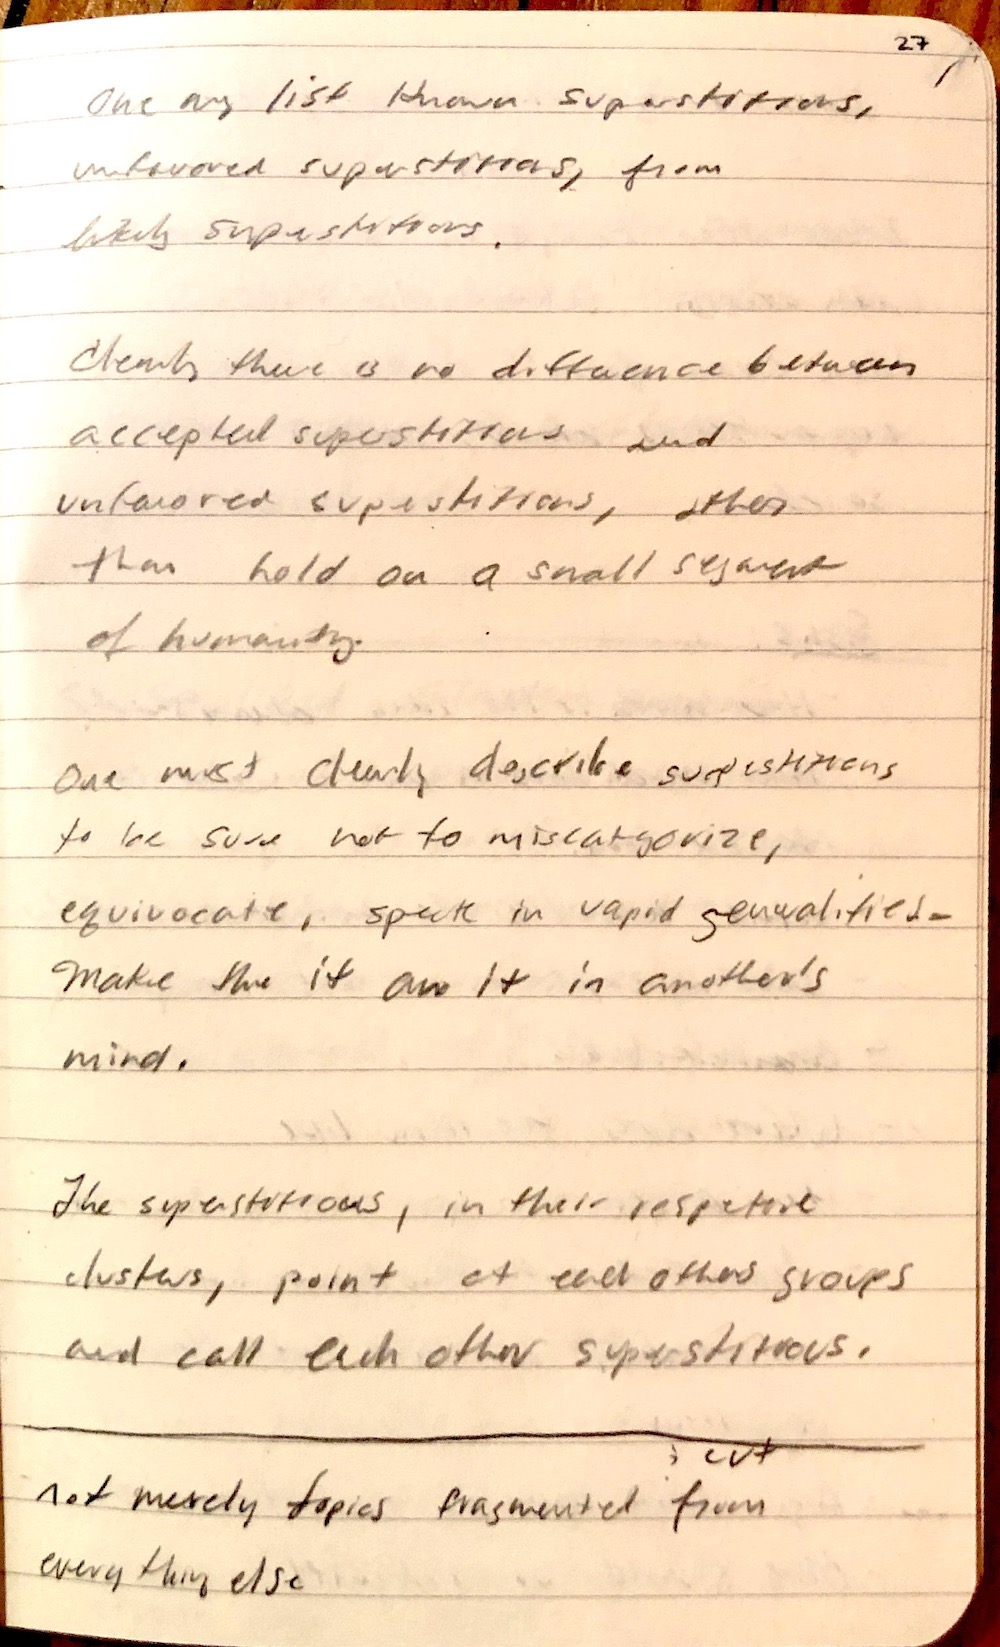 27
One may list known superstitions,
unfavored superstitions, from
likely superstitions.
Clearly there is no difference between
accepted superstitions and
unfavored superstitions, other
than hold on a small segment
of humanity.
One must clearly describe superstitions
to be sure not to miscategorize,
equivocate, speak in vapid generalities-
Make the it an it in another's
mind.
The superstitious, in their respective
clusters, point at each others groups
and call each other superstitious.
; cut
not merely topics fragmented from
everything else